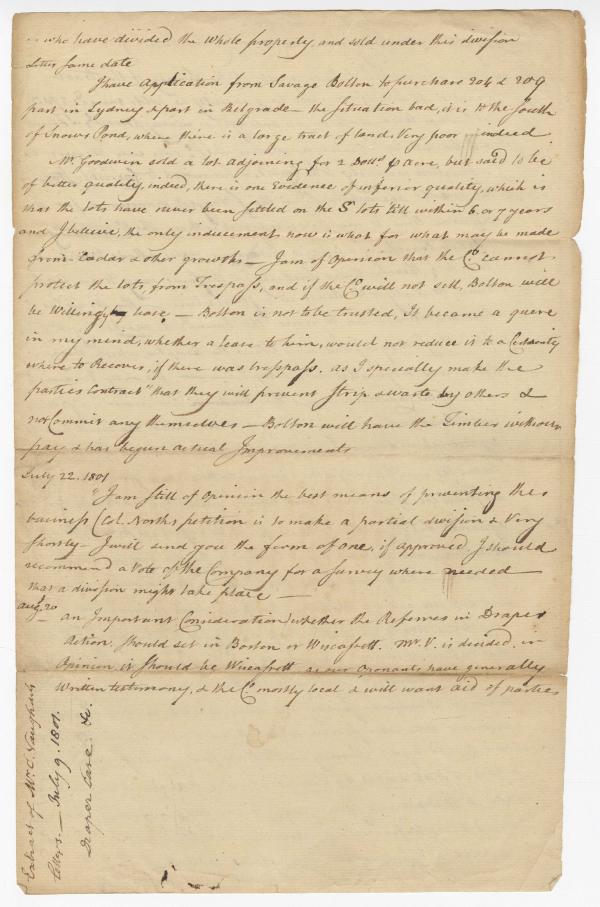 who have divided the whole property, and sold under this division
Letter same date
I have Application from Savage Bolton to purchase 204 & 209
part in Sydney & part in Belgrade – the situation bad, it is to the South
of Snows Pond, where there is a large tract of land, Very poor indeed
Mr. Goodwin sold a lot adjoining for 2 Dolls P acre, but said to be
of better quality, indeed, there is one Evidence of inferior quality, which is
that the lots have never been settled on the Sd lots till within 6. or 7 years
and I believe, the only inducement now is what for what may be made
from Cedar & other growths – I am of Opinion that the Co. cannot
protect the lots, from Trespass, and if the Co. will not sell, Bolton will
be Willing to lease – Bolton is not to be trusted, It became a quere
in my mind, whether a lease to him, would not reduce it to a Certainty
where to Recover, if there was trespass. as I specially make the
parties Contract "that they will prevent Strip & waste by others &
not Commit any themselves – Bolton will have the Timber without
pay & has begun actual Improvements
July 22. 1801
"I am still of Opinion the best means of preventing the
business (Col. Norths petition is to make a partial division & Very
shortly – I will send you the form of one, if approved I should
recommend a Vote of the Company for a survey where needed
that a division might take place –
Augt. 20
an Important Consideration) whether the Referees in Draper
Action, should set in Boston or Wiscassett. Mr. V. is decided, in
Opinion it should be Wiscassett as our Oponants have generally
written testimony, & the Co. mostly local & will want aid of parties
Extract of Mr. C. Vaughans
letters. – July 9. 1801.
Draper Case &c.